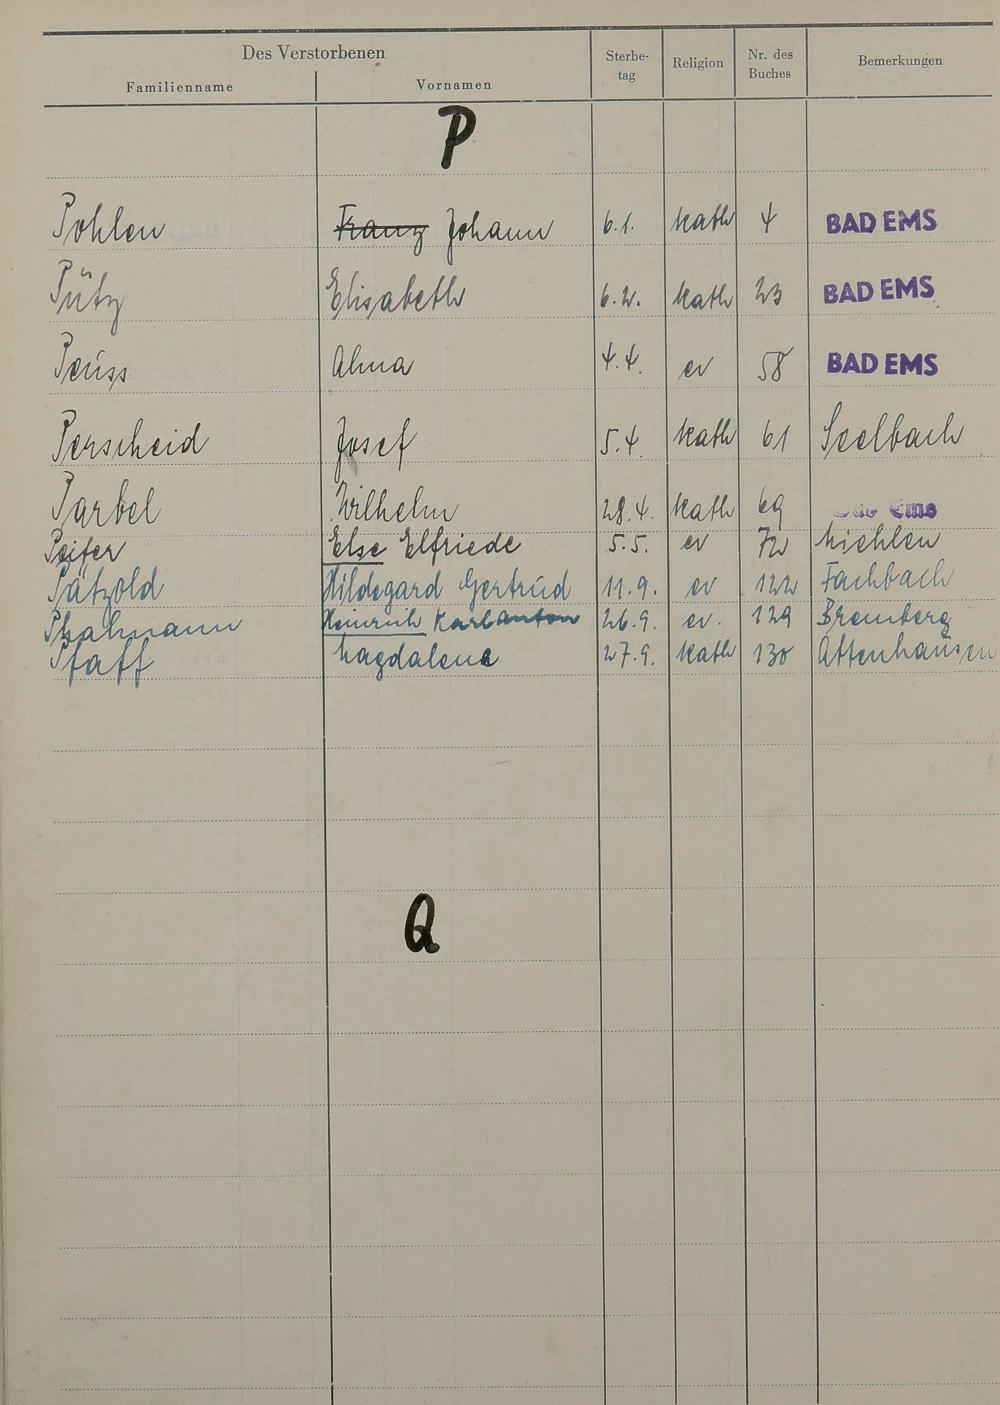 Des Verstorbenen
Familienname Vornamen Sterbe-tag Religion Nr. des Buches Bemerkungen
P
Pohlen Franz Johann 6.1. kath 4 BAD EMS
Pütz Elisabeth 6.2. kath 23 BAD EMS
Peüss Alma 4.4. ev 58 BAD EMS
Perscheid Josef 5.4. kath 61 Seelbach
Parbel Wilhelm 28.4. kath 69 Bad Ems
Peifer Else Elfriede 5.5. ev 72 Miehlen
Pätzold Hildegard Gertrüd 11.9. ev 122 Fachbach
Heinrich Karl Anton 26.9. ev. 129 Bremberg
Pfaff Magdalena 27.9. kath 130 Attenhaüsen
Q